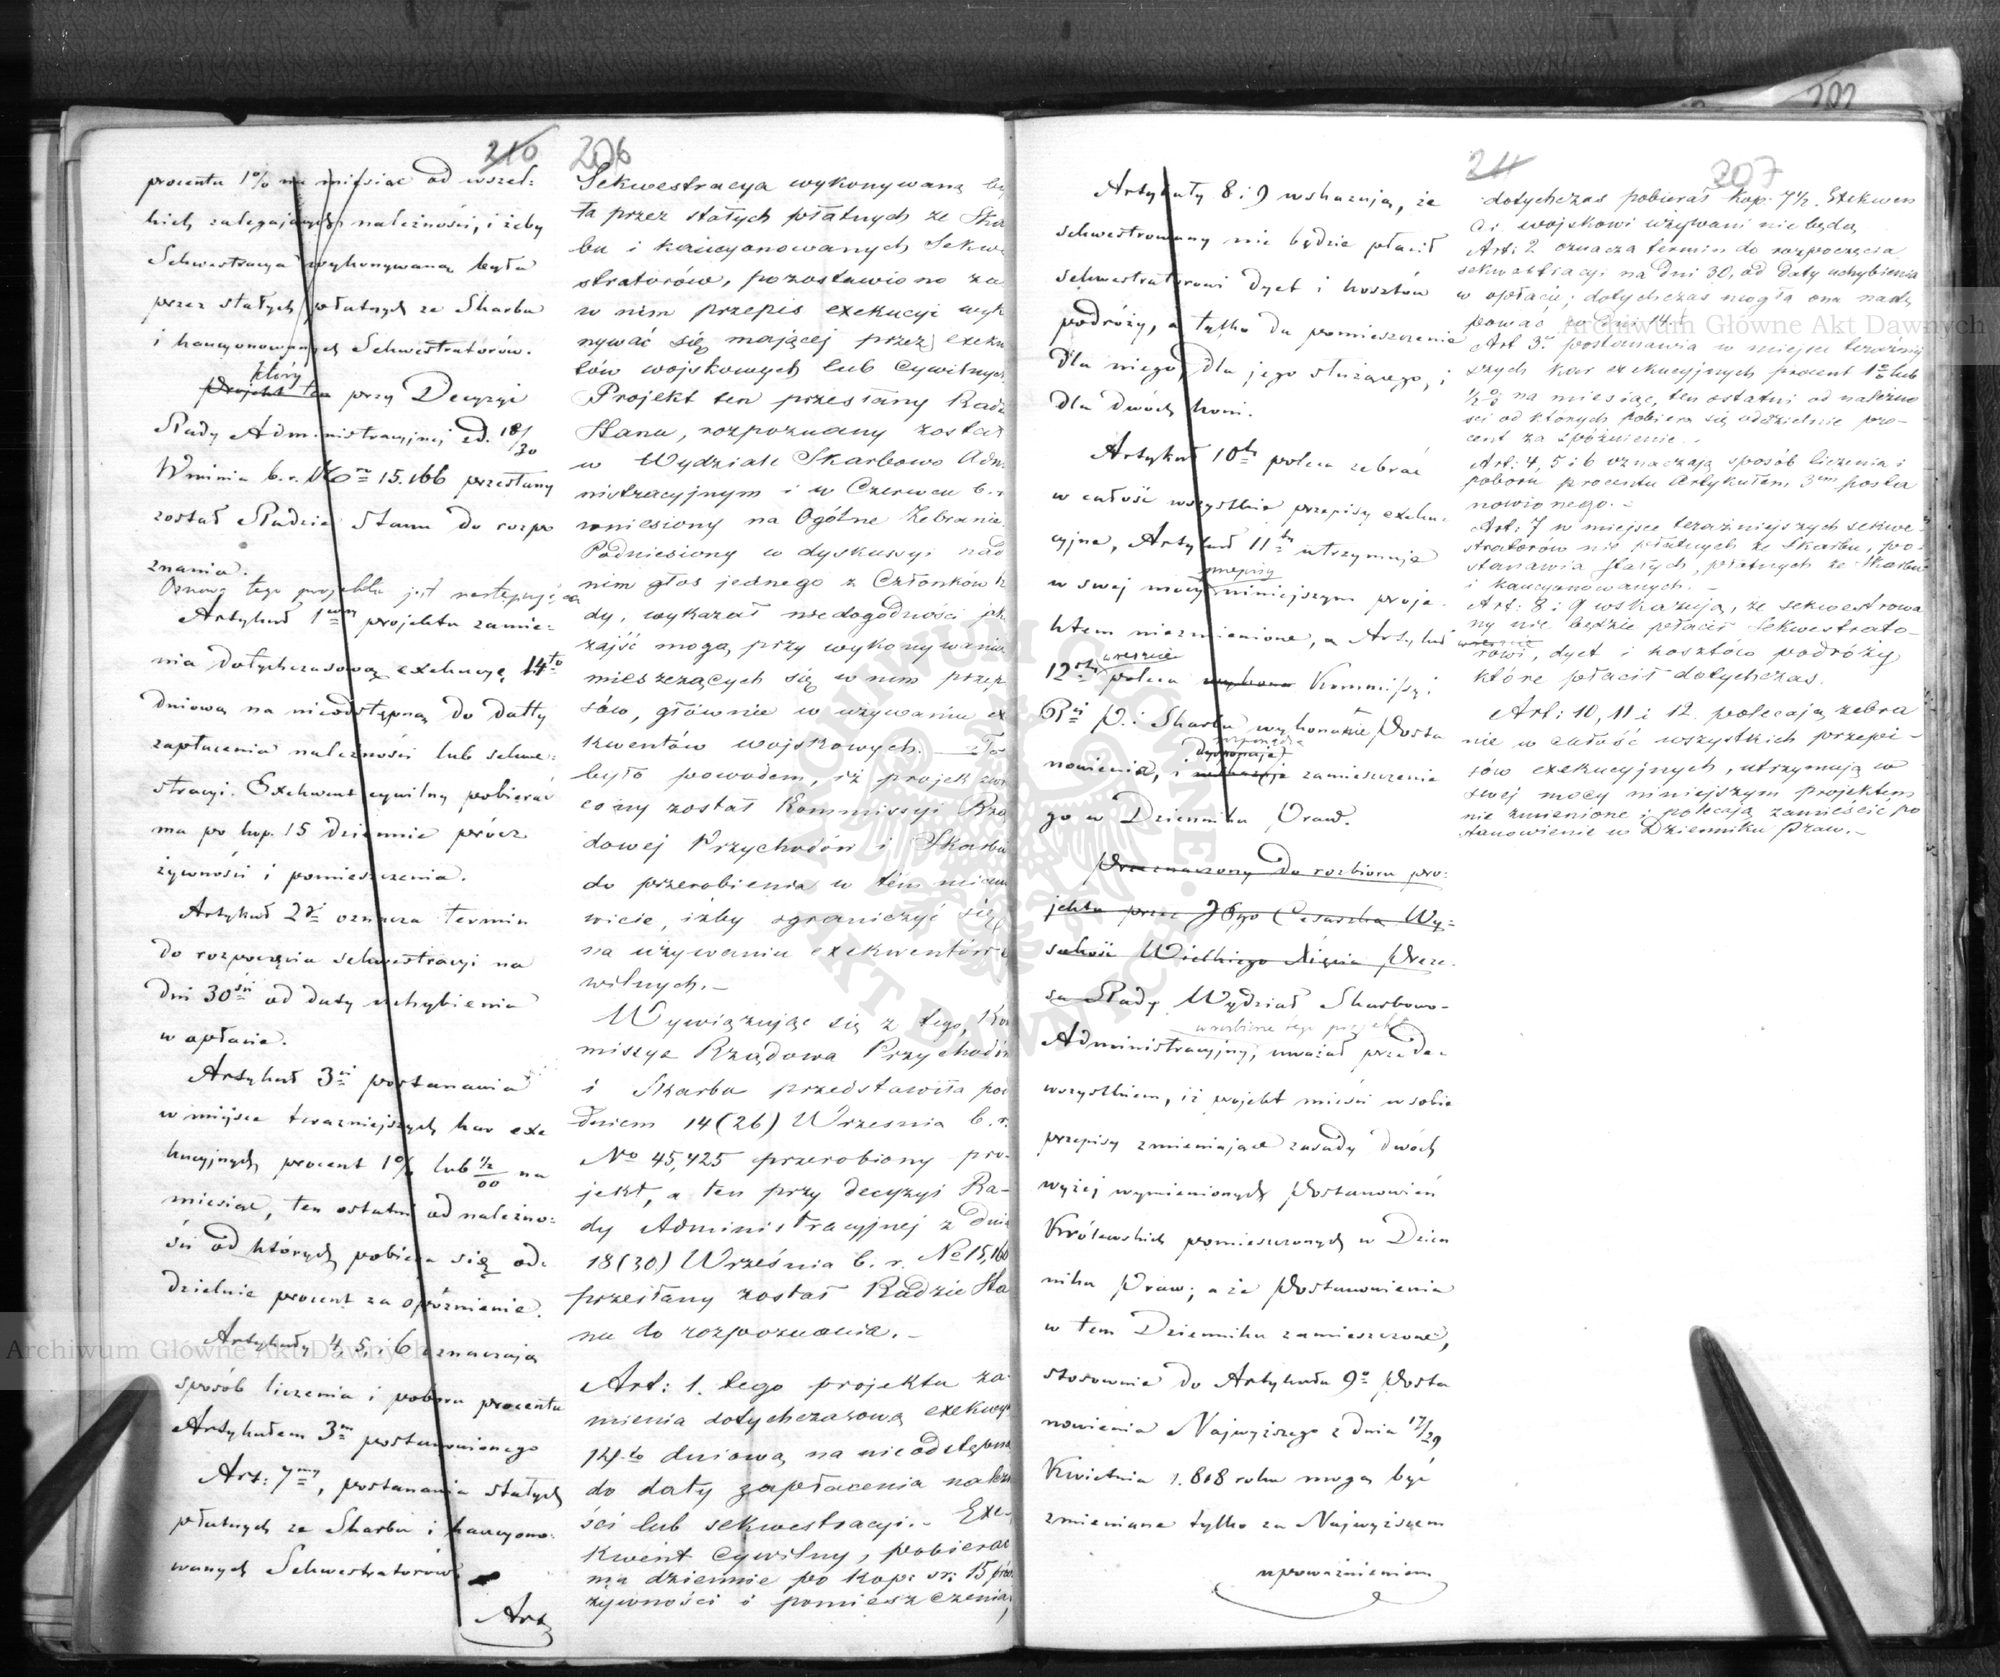 210 206
procentu 1% na miesiąc od wszel:
kich zalegających należności, i żeby
Sekwestracya wykonywaną była
przez stałych płatnych ze Skarbu
i kaucyonowanych Sekwestratorów.
który
Projekt ten przy Decyzyi
Rady Administracyjnej z d. 18/30
Września b. r. No 15.166 przesłany
został Radzie Stanu do rozpo
znania.
Osnowa tego projektu jest następująca
Artykuł 1wszy projektu zamie:
nia dotychczasową exekucyę 14to
dniową na nieodstępną do datty
zapłacenia należności lub sekwe:
stracyi. Exekwent cywilny pobierać
ma po kop. 15 dziennie prócz
żywności i pomieszczenia.
Artykuł 2gi oznacza termin
do rozpoczęcia sekwestracyi na
dni 30ści od daty uchybienia
w opłacie.
Artykuł 3ci postanawia
w miejsce terazniejszych kar exe
kucyjnych procent 1% lub 1/2 00 na
miesiąc, ten ostatni od należno:
ści od których pobiera się od:
dzielnie procent za opóźnienie.
Artykuły 4, 5, i 6 oznaczają
sposób liczenia i poboru procentu
Artykułem 3m postanowionego
Art: 7my, postanawia stałych
płatnych ze Skarbu i kaucyono:
wanych Sekwestratorów
Art
Sekwestracya wykonywaną by
ła przez stałych płatnych ze Skar
bu i kaucyonowanych Sekwe
stratorów, pozostawiono za
w nim przepis exekucyi wyk
nywać się mającej przez exek
tów wojskowych lub cywilnych
Projekt ten przesłany Radz
Stanu, rozpoznany został
w Wydziale Skarbowo Adm
nistracyjnym i w Czerwcu b. r.
wniesiony na Ogólne Zebranie
Podniesiony w dyskussyi nad
nim głos jednego z Członków R
dy, wykazał niedogodności jak
zajść mogą przy wykonywaniu
mieszczących się w nim przep
sów, głównie w używaniu ex
kwentów wojskowych. — To
było powodem, iż projek zwr
cony został Kommissyi Rzą
dowej Przychodów i Skarbu
do przerobienia w tém miano
wicie, iżby ograniczyć się
na używaniu exekwentów c
wilnych. —
Wywiązując się z tego, Kom
missya Rządowa Przychodów
i Skarbu przedstawiła pod
dniem 14 (26) Września b. r.
No 45,425 przerobiony pro-
jekt, a ten przy decyzyi Ra-
dy Administracyjnej z dnia
18 (30) Września b. r. No 15,166
przesłany został Radzie Sta
nu do rozpoznania. —
Art: 1. tego projektu za-
mienia dotychczasową exekucyę
14to dniową na nieodstępną
do daty zapłacenia należno
ści lub sekwestracyi. - Exe-
kwent Cywilny, pobierać
ma dziennie po kop: sr: 15 prócz
żywności i pomieszczenia,
211 207
Artykuły 8 i 9 wskazują, że
sekwestrowany nie będzie płacił
sekwestratorowi dyet i kosztów
podróży, a tylko da pomieszczenie
dla niego, dla jego służącego, i
dla dwóch koni.
Artykuł 10ty poleca zebrać
w całość wszystkie przepisy exeku:
cyjne, Artykuł 11ty utrzymuje
przepisy
w swej mocy niniejszym proje-
ktem niezmienione, a Artykuł
wreszcie
12sty poleca wykona Kommissyi
Rej P. i Skarbu wykonanie Posta
rozporządza
nowienia, i zamieszczenie
go w Dzienniku Praw.
Przeznaczony do rozbioru pro:
jektu przez Jego Cesarska Wy:
sokość Wielkiego Xięcia Preze:
sa Rady Wydział Skarbowo-
w rozbiorze tego projektu
Administracyjny, uważał przede-
wszystkiem, iż projekt mieści w sobie
przepisy zmieniające zasady dwóch
wyżej wymienionych Postanowień
Królewskich pomieszczonych w Dzien
niku Praw; a że Postanowienia
w tem Dzienniku zamieszczone,
stosownie do Artykułu 9o Posta
nowienia Najwyższego z dnia 17/29
Kwietnia 1.818 roku mogą być
zmieniane tylko za Najwyższem
upoważnieniem
dotychczas pobierał kop. 7 1/2. Exekwen
ci wojskowi używani nie będą
Art: 2 oznacza termin do rozpoczęcia
sekwestracyi na dni 30, od daty uchybienia
w opłacie; dotychczas mogła ona nastę
pować po dni 14.
Art 3. postanawia w miejsce teraźniej
szych kar exekucyjnych procent 1% lub
1/2 % na miesiąc, ten ostatni od należno
ści od których pobiera się oddzielnie pro-
cent za spóźnienie. -
Art: 4, 5 i 6 oznaczają sposób liczenia i
poboru procentu Artykułem 3em posta
nowionego. -
Art: 7 w miejsce teraźniejszych sekwe
stratorów nie płatnych ze Skarbu, po-
stanawia stałych, płatnych ze Skarbu
i kaucyonowanych. -
Art: 8 i 9 wskazują, że sekwestrowa
ny nie będzie płacił Sekwestrato-
rowi, dyet i kosztów podróży
które płacił dotychczas.
Art: 10, 11 i 12. polecają zebra
nie w całość wszystkich przepi-
sów exekucyjnych, utrzymują w
swej mocy niniejszym projektem
nie zmienione i polecają zamieścić po
stanowienie w Dzienniku Praw. -
202
Archiwum Główne Akt Dawnych
Archiwum Główne Akt Dawnych
ARCHIWUM GŁÓWNE AKT DAWNYCH